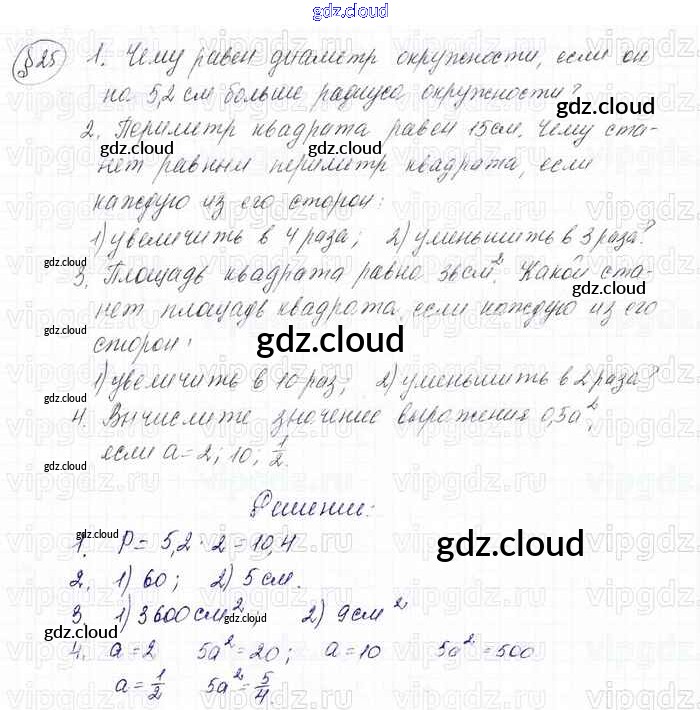 gdz.cloud
§25 1. Чему равен диаметр окружности, если он
на 5,2 см больше радиуса окружности?
gdz.cloud
2. Периметр квадрата равен 15 см. Чему ста-
gdz.cloud gdz.cloud
нет равным периметр квадрата, если
каждую из его сторон:
1) увеличить в 4 раза; 2) уменьшить в 3 раза?
gdz.cloud
3. Площадь квадрата равна 36 см². Какой ста-
gdz.cloud
нет площадь квадрата, если каждую из его
сторон:
gdz.cloud
1) увеличить в 10 раз; 2) уменьшить в 2 раза?
4. Вычислите значение выражения 0,5a²,
если a = 2; 10; 1/2.
gdz.cloud gdz.cloud
Решение:
1. P = 5,2 · 2 = 10,4
gdz.cloud gdz.cloud
2. 1) 60; 2) 5 см.
3. 1) 3600 см², 2) 9 см²
gdz.cloud gdz.cloud
4. a = 2 5a² = 20; a = 10 5a² = 500
a = 1/2 5a² = 5/4.